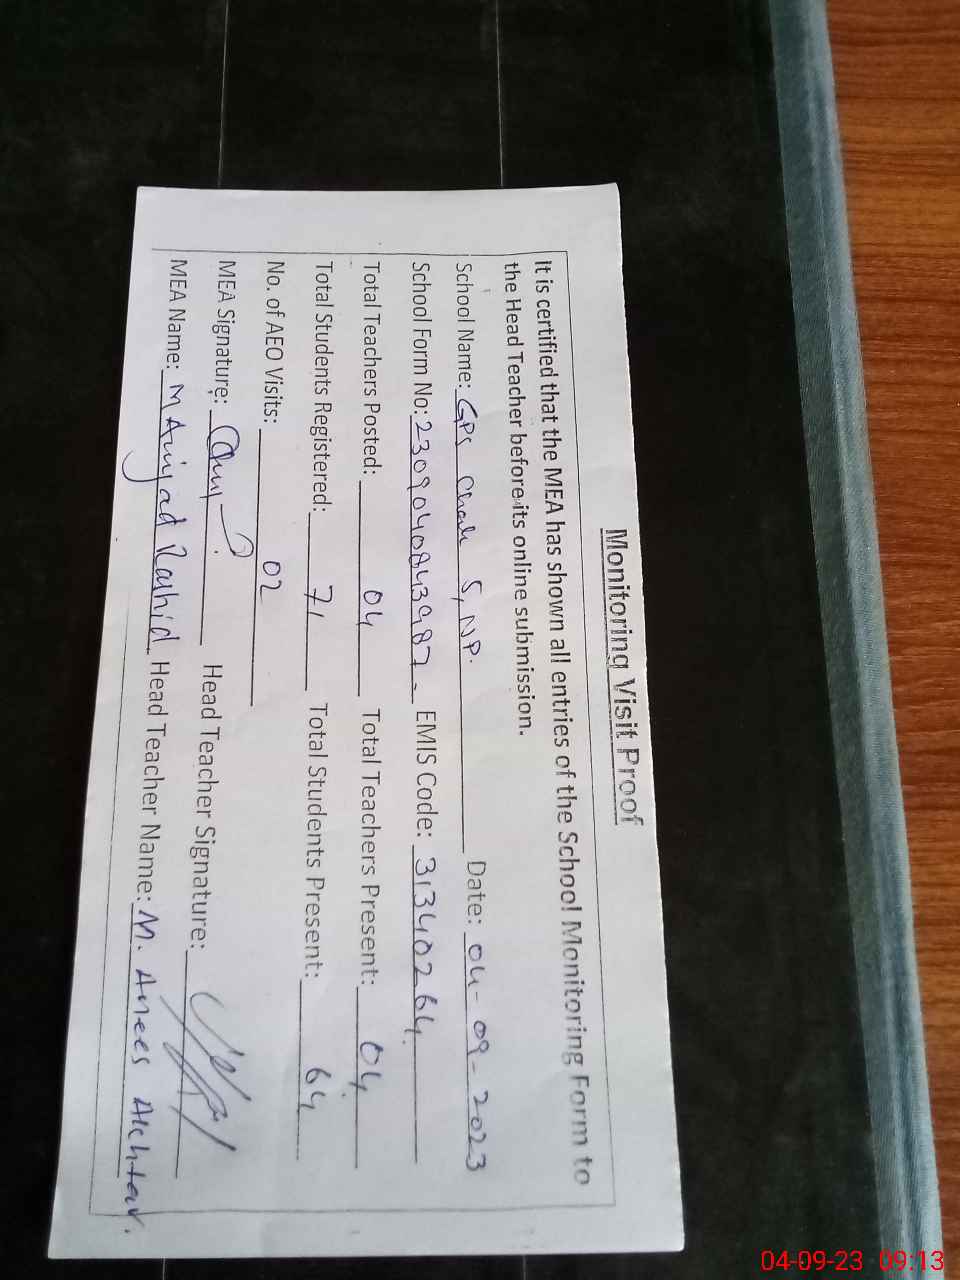 Monitoring Visit Proof
It is certified that the MEA has shown all entries of the School Monitoring Form to
the Head Teacher before its online submission.
School Name: GPS Chak 5, NP. Date: 04-09-2023
School Form No: 2309040843987 - EMIS Code: 31340264.
Total Teachers Posted: 04 Total Teachers Present: 04
Total Students Registered: 71 Total Students Present: 64
No. of AEO Visits: 02
MEA Signature: Head Teacher Signature:
MEA Name: M Amjad Rashid Head Teacher Name: M. Anees Akhtar.
04-09-23 09:13